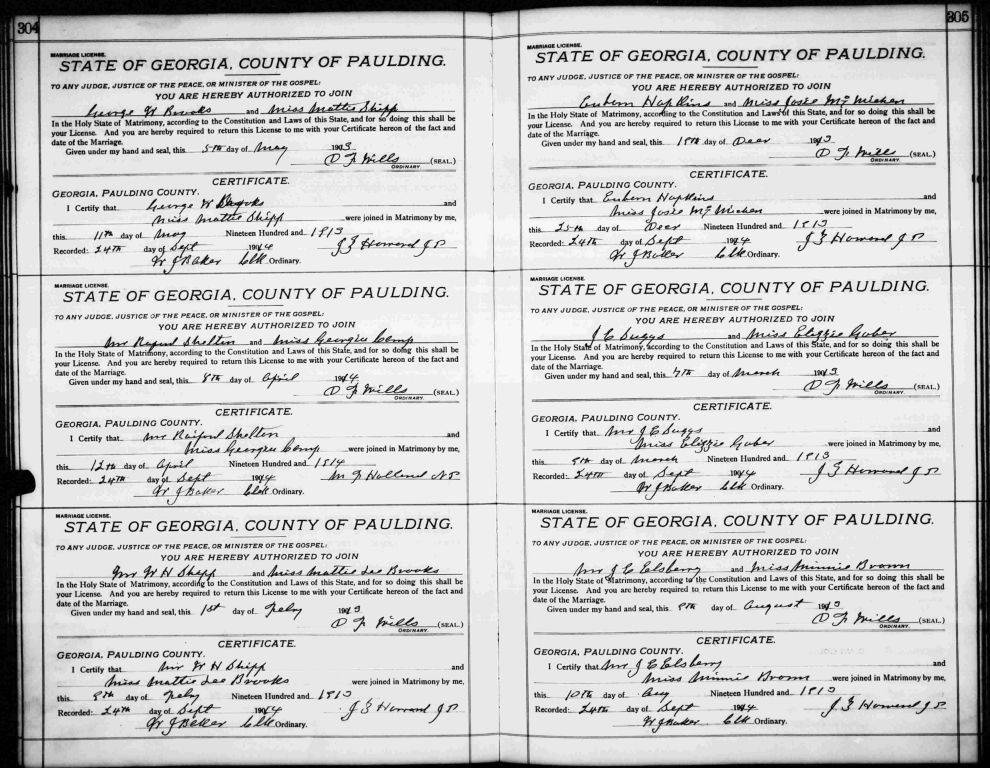 304
MARRIAGE LICENSE.
STATE OF GEORGIA, COUNTY OF PAULDING.
TO ANY JUDGE, JUSTICE OF THE PEACE, OR MINISTER OF THE GOSPEL:
YOU ARE HEREBY AUTHORIZED TO JOIN
George W Brooks and Miss Mattie Shipp
In the Holy State of Matrimony, according to the Constitution and Laws of this State, and for so doing this shall be
your License. And you are hereby required to return this License to me with your Certificate hereon of the fact and
date of the Marriage.
Given under my hand and seal, this 5th day of May 1913
O F Wills (SEAL.)
ORDINARY.
CERTIFICATE.
GEORGIA, PAULDING COUNTY.
I Certify that George W Brooks and
Miss Mattie Shipp were joined in Matrimony by me,
this 11th day of May Nineteen Hundred and 1913
Recorded: 24th day of Sept 1914 J F Howard J P
W J Baker Clk Ordinary.
MARRIAGE LICENSE.
STATE OF GEORGIA, COUNTY OF PAULDING.
TO ANY JUDGE, JUSTICE OF THE PEACE, OR MINISTER OF THE GOSPEL:
YOU ARE HEREBY AUTHORIZED TO JOIN
Mr Raiford Shelton and Miss Georgie Camp
In the Holy State of Matrimony, according to the Constitution and Laws of this State, and for so doing this shall be
your License. And you are hereby required to return this License to me with your Certificate hereon of the fact and
date of the Marriage.
Given under my hand and seal, this 8th day of April 1914
O F Wills (SEAL.)
ORDINARY.
CERTIFICATE.
GEORGIA, PAULDING COUNTY.
I Certify that Mr Raiford Shelton and
Miss Georgie Camp were joined in Matrimony by me,
this 12th day of April Nineteen Hundred and 1914
Recorded: 24th day of Sept 1914 M F Holland N P
W J Baker Clk Ordinary.
MARRIAGE LICENSE.
STATE OF GEORGIA, COUNTY OF PAULDING.
TO ANY JUDGE, JUSTICE OF THE PEACE, OR MINISTER OF THE GOSPEL:
YOU ARE HEREBY AUTHORIZED TO JOIN
Mr W H Shipp and Miss Mattie Lee Brooks
In the Holy State of Matrimony, according to the Constitution and Laws of this State, and for so doing this shall be
your License. And you are hereby required to return this License to me with your Certificate hereon of the fact and
date of the Marriage.
Given under my hand and seal, this 1st day of Feby 1913
O F Wills (SEAL.)
ORDINARY.
CERTIFICATE.
GEORGIA, PAULDING COUNTY.
I Certify that Mr W H Shipp and
Miss Mattie Lee Brooks were joined in Matrimony by me,
this 9th day of Feby Nineteen Hundred and 1913
Recorded: 24th day of Sept 1914 J F Howard J P
W J Baker Clk Ordinary.
305
MARRIAGE LICENSE.
STATE OF GEORGIA, COUNTY OF PAULDING.
TO ANY JUDGE, JUSTICE OF THE PEACE, OR MINISTER OF THE GOSPEL:
YOU ARE HEREBY AUTHORIZED TO JOIN
Hapkins and Miss Josie Mc Michen
In the Holy State of Matrimony, according to the Constitution and Laws of this State, and for so doing this shall be
your License. And you are hereby required to return this License to me with your Certificate hereon of the fact and
date of the Marriage.
Given under my hand and seal, this day of Decr 1913
O F Wills (SEAL.)
ORDINARY.
CERTIFICATE.
GEORGIA, PAULDING COUNTY.
I Certify that Hapkins and
Miss Josie Mc Michen were joined in Matrimony by me,
this 25th day of Decr Nineteen Hundred and 1913
Recorded: 24th day of Sept 1914 J F Howard J P
W J Baker Clk Ordinary.
MARRIAGE LICENSE.
STATE OF GEORGIA, COUNTY OF PAULDING.
TO ANY JUDGE, JUSTICE OF THE PEACE, OR MINISTER OF THE GOSPEL:
YOU ARE HEREBY AUTHORIZED TO JOIN
J C Suggs and Miss Elizzie Gaber
In the Holy State of Matrimony, according to the Constitution and Laws of this State, and for so doing this shall be
your License. And you are hereby required to return this License to me with your Certificate hereon of the fact and
date of the Marriage.
Given under my hand and seal, this 7th day of March 1913
O F Wills (SEAL.)
ORDINARY.
CERTIFICATE.
GEORGIA, PAULDING COUNTY.
I Certify that Mr J C Suggs and
Miss Elizzie Gaber were joined in Matrimony by me,
this 9th day of March Nineteen Hundred and 1913
Recorded: 24th day of Sept 1914 J F Howard J P
W J Baker Clk Ordinary.
MARRIAGE LICENSE.
STATE OF GEORGIA, COUNTY OF PAULDING.
TO ANY JUDGE, JUSTICE OF THE PEACE, OR MINISTER OF THE GOSPEL:
YOU ARE HEREBY AUTHORIZED TO JOIN
Mr J C Elsberry and Miss Minnie Brown
In the Holy State of Matrimony, according to the Constitution and Laws of this State, and for so doing this shall be
your License. And you are hereby required to return this License to me with your Certificate hereon of the fact and
date of the Marriage.
Given under my hand and seal, this 9th day of August 1913
O F Wills (SEAL.)
ORDINARY.
CERTIFICATE.
GEORGIA, PAULDING COUNTY.
I Certify that Mr J C Elsberry and
Miss Minnie Brown were joined in Matrimony by me,
this 10th day of Aug Nineteen Hundred and 1913
Recorded: 24th day of Sept 1914 J F Howard J P
W J Baker Clk Ordinary.